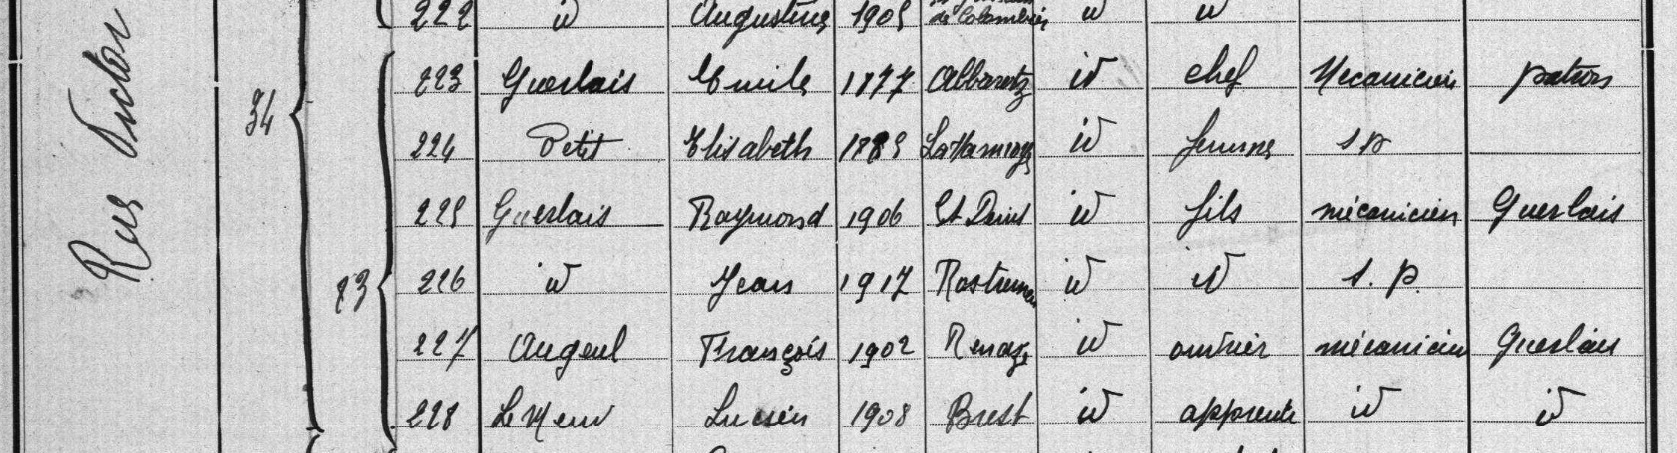 222 id Augustine 1905 de Colombier id id
Rue Victor
34
223 Gueslais Emile 1877 Abbaretz id chef Mecanicien patron
224 Petit Elisabeth 1885 id femme s p
225 Gueslais Raymond 1906 St Denis id fils mécanicien Gueslais
73
226 id Jean 1917 Rostrenen id id s. p.
227 Augeul François 1902 Renazé id ouvrier mécanicien Gueslais
228 Le Meur Lucien 1908 Brest id apprenti id id